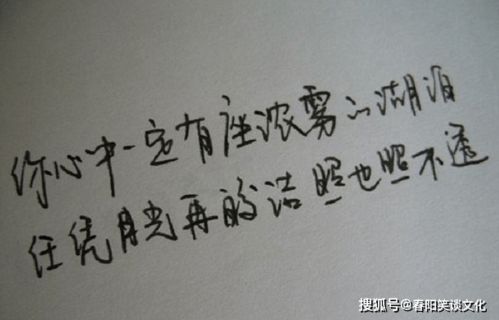 你心中一定有座浓雾的湖泊
任凭月光再皎洁照也照不透
搜狐号@春阳笑谈文化